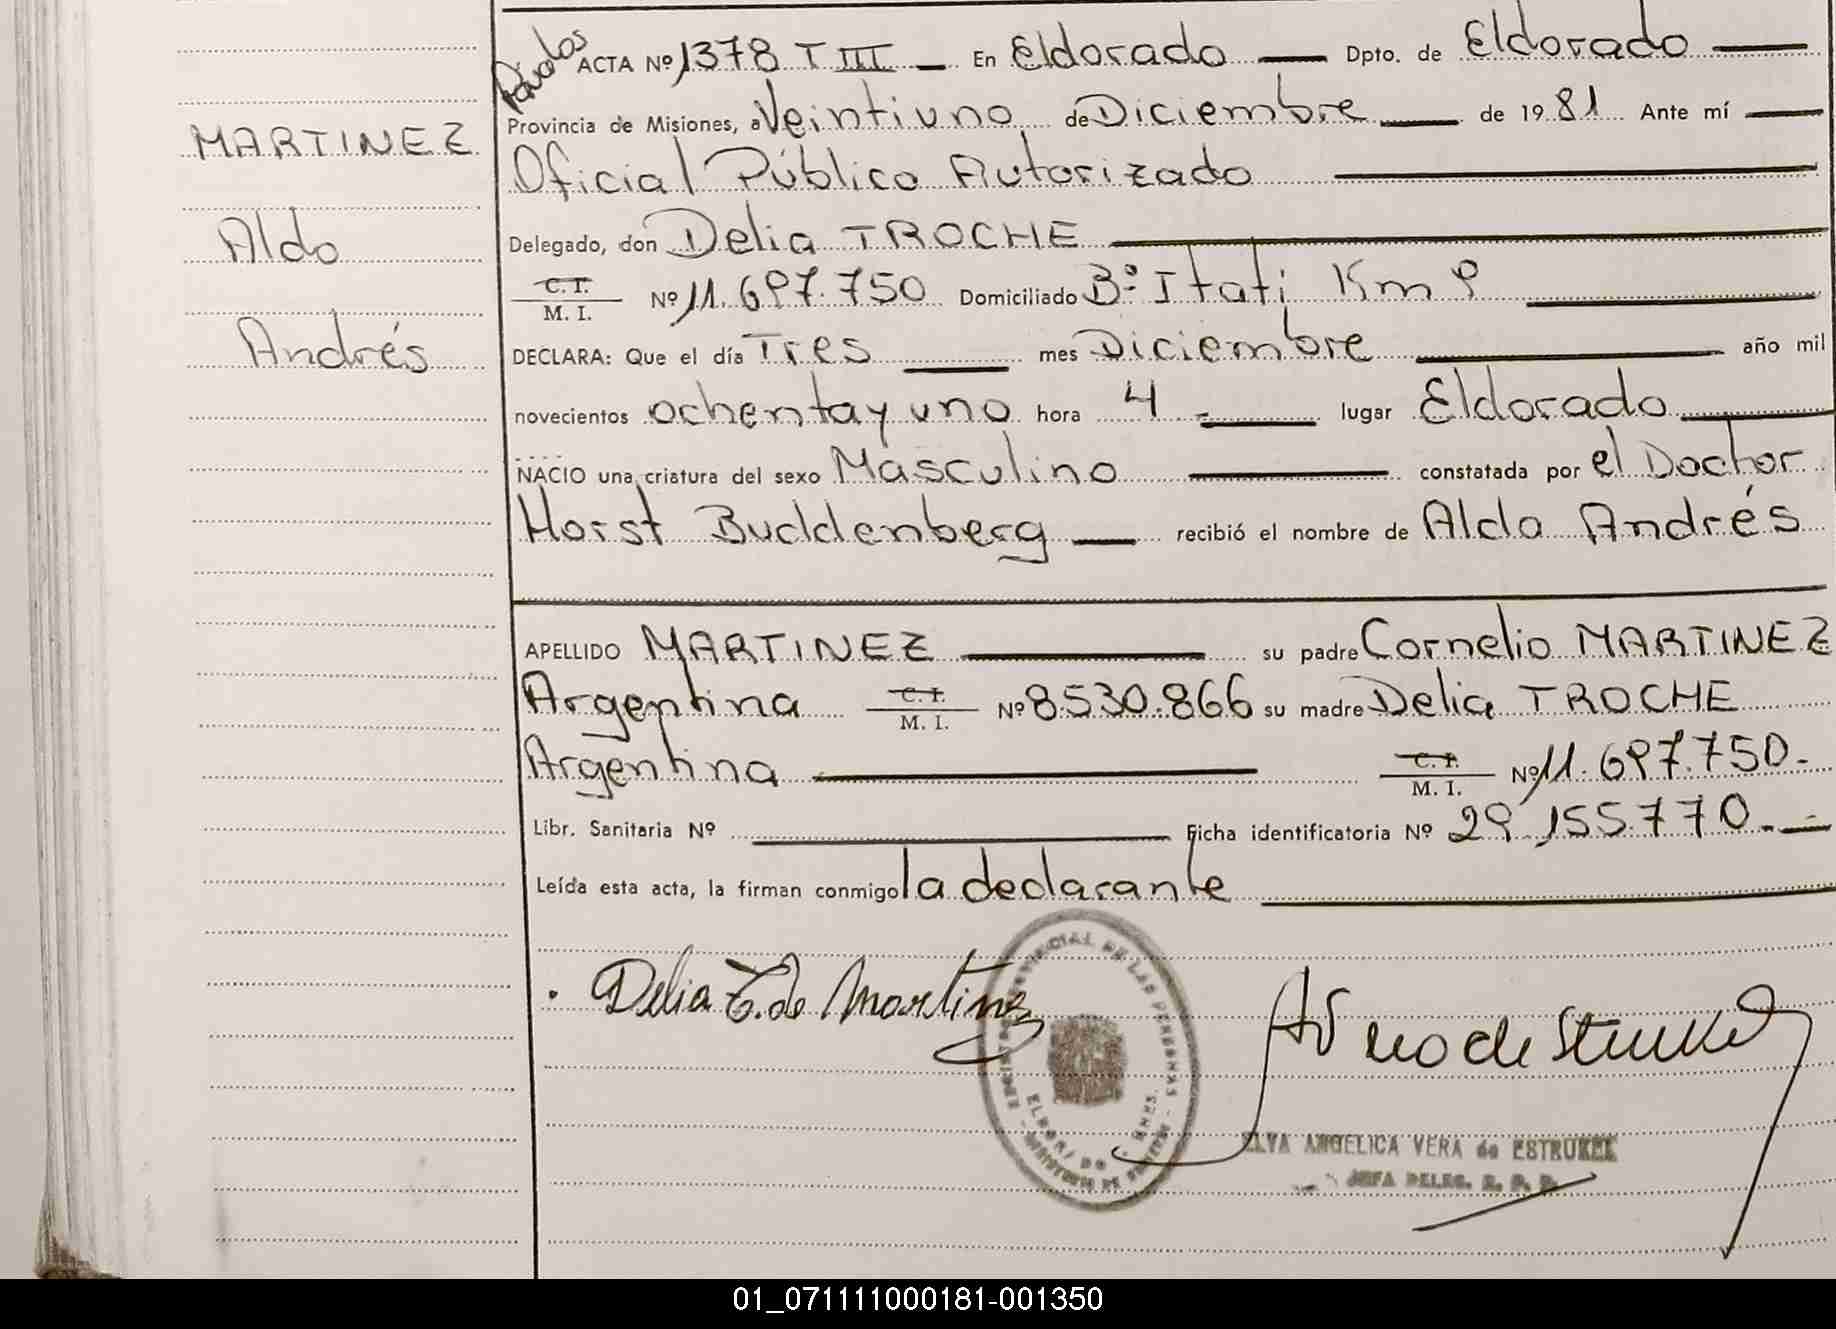 MARTINEZ
Aldo
Andrés
ACTA Nº 1378 T III — En Eldorado — Dpto. de Eldorado —
Provincia de Misiones, a Veintiuno de Diciembre — de 19 81 Ante mí —
Oficial Público Autorizado —
Delegado, don Delia TROCHE —
C. I. / M. I. Nº 11.697.750 Domiciliado Bº Itati Km 9 —
DECLARA: Que el día Tres — mes Diciembre — año mil
novecientos ochenta y uno hora 4 - — lugar Eldorado —
NACIO una criatura del sexo Masculino — constatada por el Doctor
Horst Buddenberg — recibió el nombre de Aldo Andrés
APELLIDO MARTINEZ — su padre Cornelio MARTINEZ
Argentina C. I. / M. I. Nº 8.530.866 su madre Delia TROCHE
Argentina — C. I. / M. I. Nº 11.697.750.-
Libr. Sanitaria Nº — Ficha identificatoria Nº 29.155.770.-—
Leída esta acta, la firman conmigo la declarante —
Delia T. de Martinez
PROVINCIAL DE LAS PERSONAS
ELDORADO
ELVA ANGELICA VERA de ESTRUKEL
JEFA DELEG. R. P. P.
01_071111000181-001350